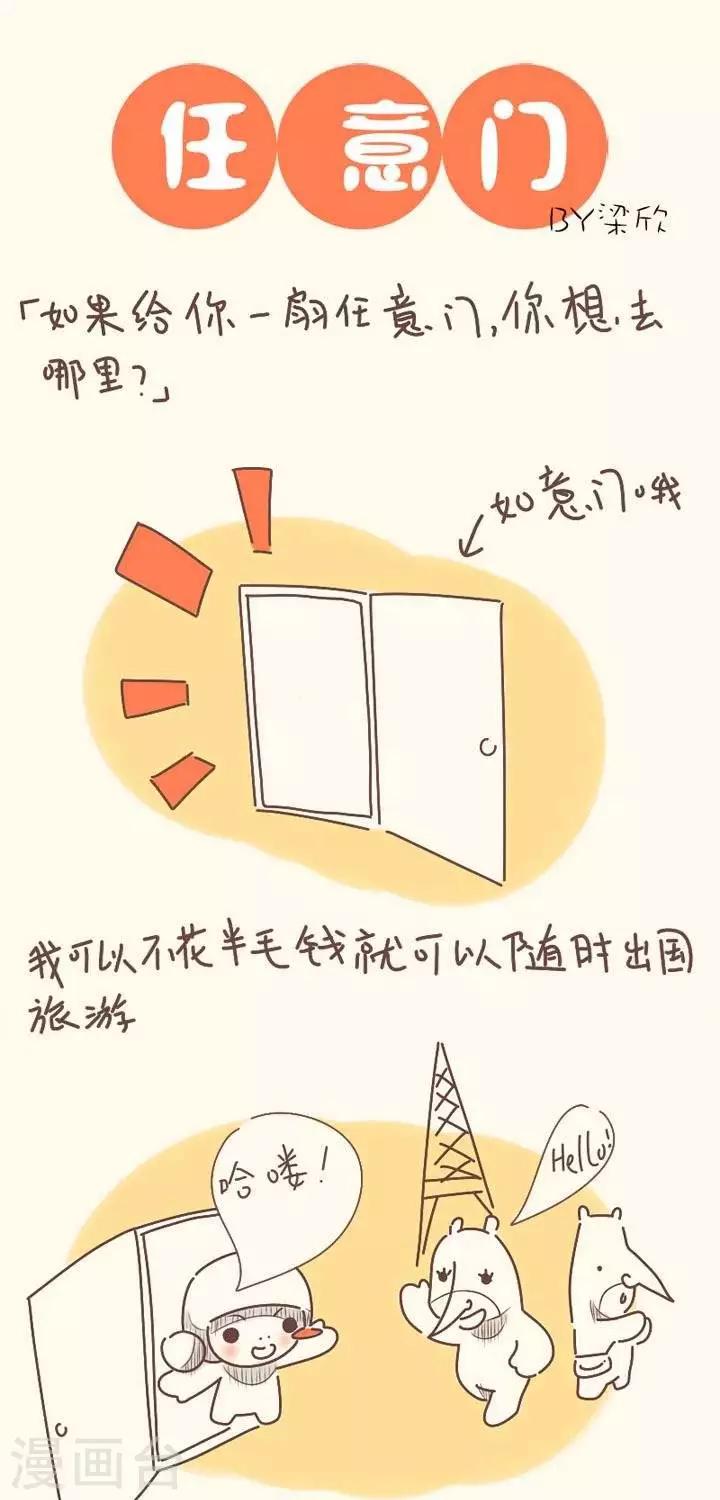 任意门
BY梁欣
「如果给你一扇任意门,你想去
哪里?」
如意门哦
我可以不花半毛钱就可以随时出国
旅游
哈喽!
Hello!
漫画台